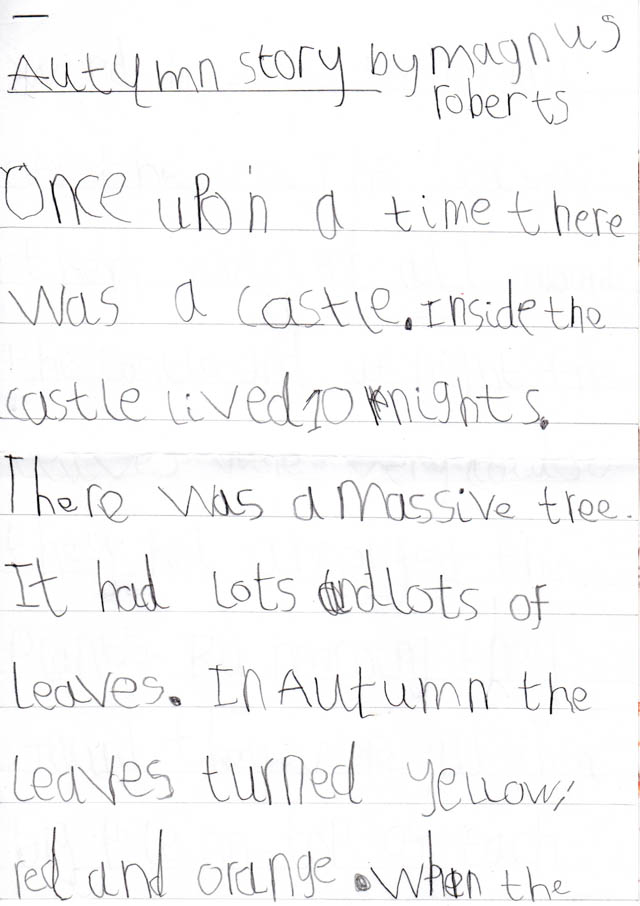 Autymn story by magnus
roberts
Once upon a time there
was a castle. Inside the
castle lived 10 knights.
There was a massive tree.
It had lots and lots of
leaves. In Autumn the
leaves turned yellow,
red and orange. When the